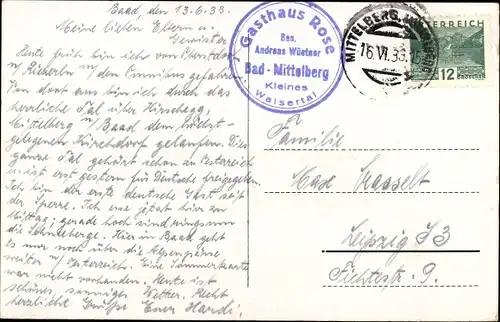 Baad, den 13.6.33.
Meine lieben Eltern u.
Geschwister
Heute früh bin ich von Oberstdorf
n/ Riezlern in den Omnibus gefahren.
Von dort aus bin ich durch das
herrliche Tal über Hirschegg,
Mittelberg n/ Baad dem höchst-
gelegenen Kirchdorf gelaufen. Dies
ganze Tal gehört schon zu Österreich
u. ist erst gestern für Deutsche freigegeben.
Ich bin der erste deutsche Gast seit
der Sperre. Ich esse jetzt hier zu
Mittag; gerade hoch sind ringsum
die Schneeberge. Hier in Baad geht
es nur noch über die Alpenpässe
weiter n/ Österreich. Eine Sommerkarte
war nicht vorhanden. Heute ist
schönes, sonniges Wetter. Recht
herzliche Grüße Euer Hardi.
Gasthaus Rose
Bes.
Andreas Wüstner
Bad-Mittelberg
Kleines
Walsertal
MITTELBERG
16.VI.33
ÖSTERREICH
12
GROSCHEN
Familie
Max
Leipzig S3
Fichtestr. 9.